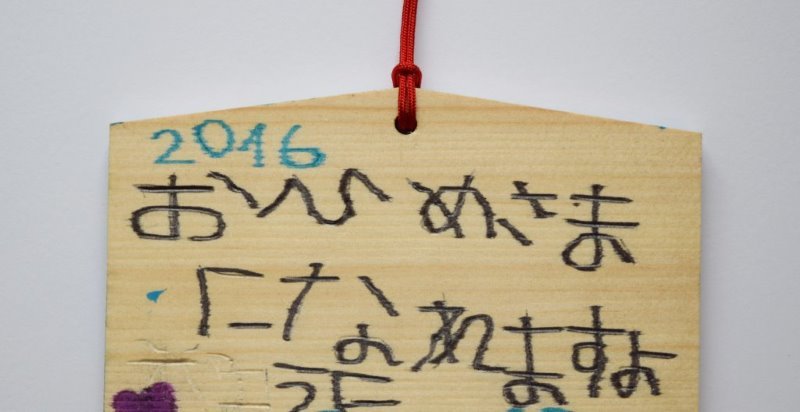 2016
おひめさま
になれますよ
うに